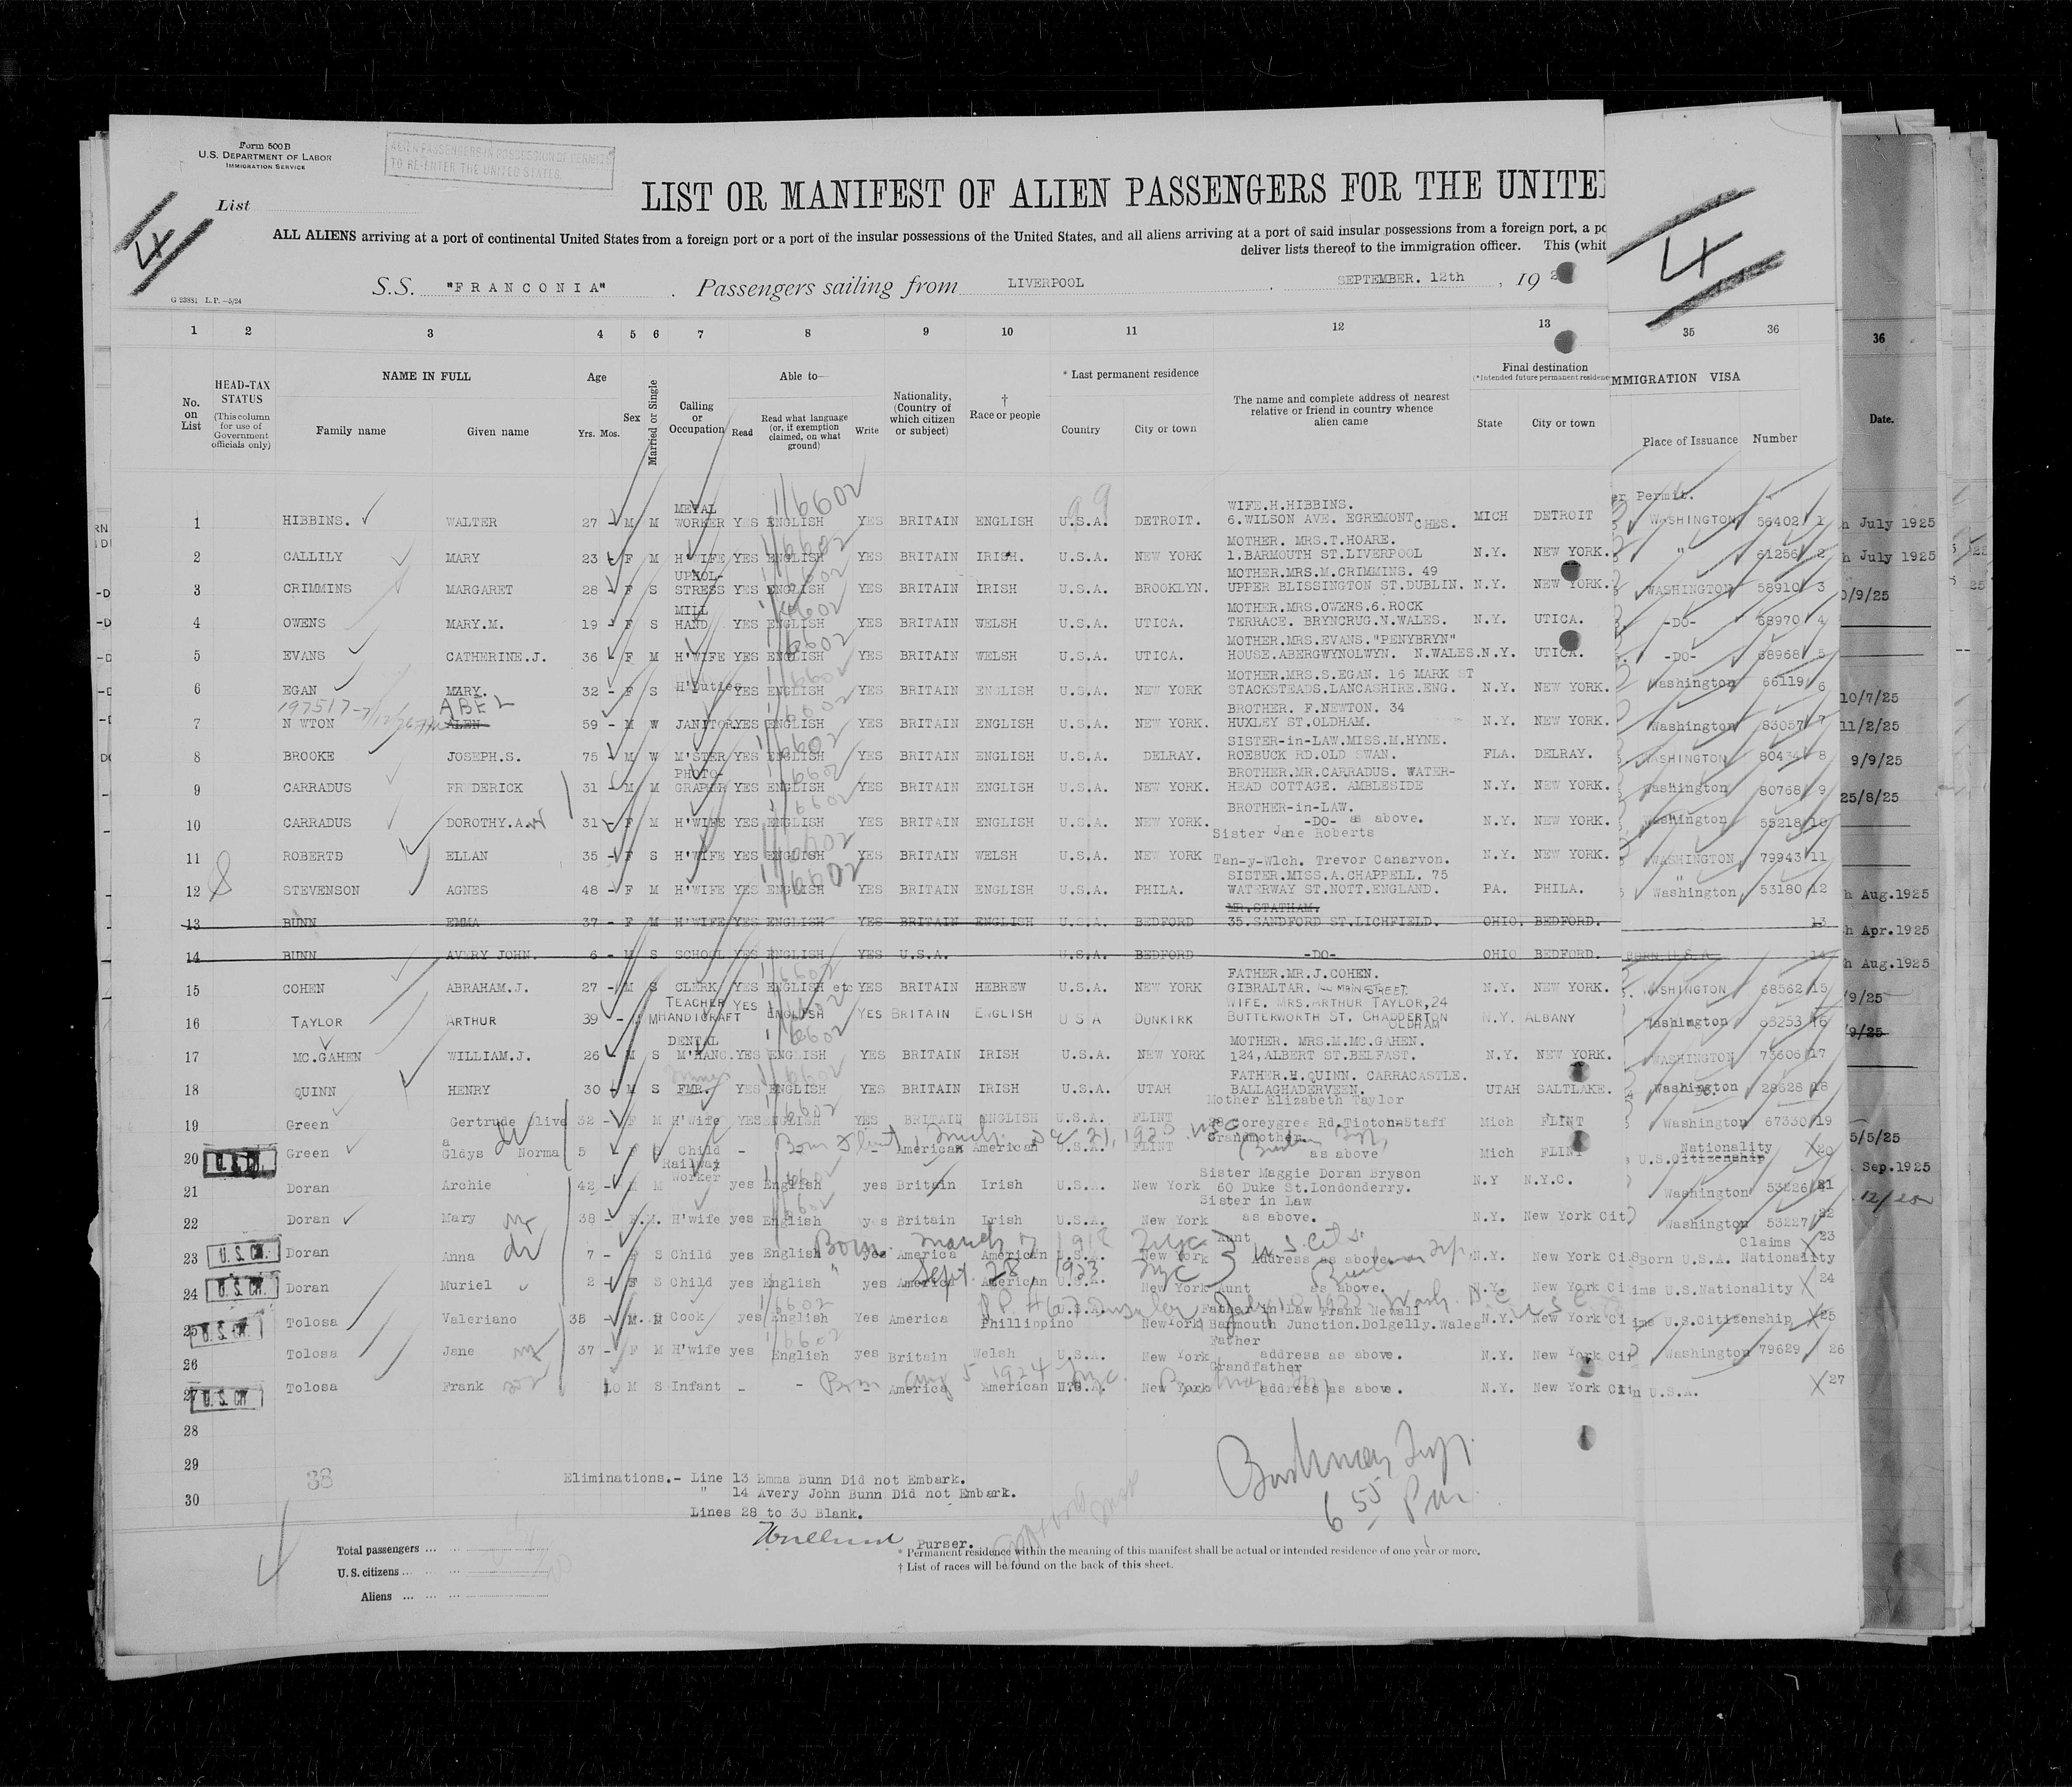 Form 500B
U.S. DEPARTMENT OF LABOR
IMMIGRATION SERVICE
ALIEN PASSENGERS IN POSSESSION OF PERMITS
TO RE-ENTER THE UNITED STATES.
List
4
LIST OR MANIFEST OF ALIEN PASSENGERS FOR THE UNITE
4
ALL ALIENS arriving at a port of continental United States from a foreign port or a port of the insular possessions of the United States, and all aliens arriving at a port of said insular possessions from a foreign port, a po
deliver lists thereof to the immigration officer. This (whit
S.S. "FRANCONIA" . Passengers sailing from LIVERPOOL . SEPTEMBER. 12th , 19 2
G 23881 L.P.—5/24
1 2 3 4 5 6 7 8 9 10 11 12 13 35 36
36
No. on List
HEAD-TAX STATUS (This column for use of Government officials only)
NAME IN FULL
Family name Given name
Age Yrs. Mos.
Sex
Married or Single
Calling or Occupation
Able to—
Read Read what language (or, if exemption claimed, on what ground) Write
Nationality, (Country of which citizen or subject)
† Race or people
* Last permanent residence
Country City or town
The name and complete address of nearest relative or friend in country whence alien came
Final destination
(*Intended future permanent residence
State City or town
MMIGRATION VISA
Place of Issuance Number
Date.
er Permit.
1 HIBBINS. WALTER 27 - M M METAL WORKER YES ENGLISH YES BRITAIN ENGLISH U.S.A. DETROIT. WIFE.H.HIBBINS. 6.WILSON AVE. EGREMONT CHES. MICH DETROIT WASHINGTON 56402 1
2 CALLILY MARY 23 F M H'WIFE YES ENGLISH YES BRITAIN IRISH. U.S.A. NEW YORK MOTHER. MRS.T.HOARE. 1.BARMOUTH ST.LIVERPOOL N.Y. NEW YORK. " 61256 2
3 CRIMMINS MARGARET 28 F S UPHOL-STRESS YES ENGLISH YES BRITAIN IRISH U.S.A. BROOKLYN. MOTHER.MRS.M.CRIMMINS. 49 UPPER BLISSINGTON ST.DUBLIN. N.Y. NEW YORK. WASHINGTON 58910 3
4 OWENS MARY.M. 19 - F S MILL HAND YES ENGLISH YES BRITAIN WELSH U.S.A. UTICA. MOTHER.MRS.OWENS.6.ROCK TERRACE. BRYNCRUG.N.WALES. N.Y. UTICA. -DO- 68970 4
5 EVANS CATHERINE.J. 36 F M H'WIFE YES ENGLISH YES BRITAIN WELSH U.S.A. UTICA. MOTHER.MRS.EVANS."PENYBRYN" HOUSE.ABERGWYNOLWYN. N.WALES. N.Y. UTICA. -DO- 68968 5
6 EGAN MARY. 32 - F S H'Dutie YES ENGLISH YES BRITAIN ENGLISH U.S.A. NEW YORK MOTHER.MRS.S.EGAN. 16 MARK ST STACKSTEADS.LANCASHIRE.ENG. N.Y. NEW YORK. Washington 66119 6
7 N WTON ABEL ALEN 59 - M W JANITOR. YES ENGLISH YES BRITAIN ENGLISH U.S.A. NEW YORK. BROTHER. F.NEWTON. 34 HUXLEY ST.OLDHAM. N.Y. NEW YORK. Washington 83057 7
8 BROOKE JOSEPH.S. 75 M W M'STER YES ENGLISH YES BRITAIN ENGLISH U.S.A. DELRAY. SISTER-in-LAW.MISS.M.HYNE. ROEBUCK RD.OLD SWAN. FLA. DELRAY. WASHINGTON 80434 8
9 CARRADUS FREDERICK 31 M M PHOTO-GRAPHER YES ENGLISH YES BRITAIN ENGLISH U.S.A. NEW YORK. BROTHER.MR.CARRADUS. WATER-HEAD COTTAGE. AMBLESIDE N.Y. NEW YORK. Washington 80768 9
10 CARRADUS DOROTHY.A. 31 - F M H'WIFE YES ENGLISH YES BRITAIN ENGLISH U.S.A. NEW YORK. BROTHER-in-LAW. -DO- as above. N.Y. NEW YORK. Washington 55218 10
11 ROBERTS ELLAN 35 - F S H'WIFE YES ENGLISH YES BRITAIN WELSH U.S.A. NEW YORK Sister Jane Roberts Tan-y-Wlch. Trevor Canarvon. N.Y. NEW YORK. WASHINGTON 79943 11
12 STEVENSON AGNES 48 - F M H'WIFE YES ENGLISH YES BRITAIN ENGLISH U.S.A. PHILA. SISTER.MISS.A.CHAPPELL. 75 WATERWAY ST.NOTT.ENGLAND. PA. PHILA. " Washington 53180 12
13 BUNN EMMA 37 - F M H'WIFE YES ENGLISH YES BRITAIN ENGLISH U.S.A. BEDFORD MR.STATHAM. 35.SANDFORD ST.LICHFIELD. OHIO. BEDFORD. 13
14 BUNN AVERY JOHN. 6 - M S SCHOOL YES ENGLISH YES U.S.A. U.S.A. BEDFORD -DO- OHIO BEDFORD. BORN U.S.A 14
15 COHEN ABRAHAM.J. 27 - M S CLERK YES ENGLISH etc YES BRITAIN HEBREW U.S.A. NEW YORK FATHER.MR.J.COHEN. GIBRALTAR. MAIN STREET. N.Y. NEW YORK. WASHINGTON 68562 15
16 TAYLOR ARTHUR 39 - M M TEACHER HANDICRAFT YES ENGLISH YES BRITAIN ENGLISH U S A DUNKIRK WIFE. MRS.ARTHUR TAYLOR,24 BUTTERWORTH ST. CHADDERTON OLDHAM N.Y. ALBANY Washington 83253 16
17 MC.GAHEN WILLIAM.J. 26 M S DENTAL M'HANC. YES ENGLISH YES BRITAIN IRISH U.S.A. NEW YORK MOTHER. MRS.M.MC.GAHEN. 124,ALBERT ST.BELFAST. N.Y. NEW YORK. WASHINGTON 73606 17
18 QUINN HENRY 30 M S FMR. YES ENGLISH YES BRITAIN IRISH U.S.A. UTAH FATHER.H.QUINN. CARRACASTLE. BALLAGHADERVEEN. UTAH SALTLAKE. Washington 28628 18
19 Green Gertrude Olive 32 - F M H'Wife YES ENGLISH YES BRITAIN ENGLISH U.S.A. FLINT Mother Elizabeth Taylor Coreygree Rd.Tipton-Staff Mich FLINT Washington 67330 19
20 U.S. Cit. Green Gldys Norma 5 F S Child - - - American American U.S.A. FLINT Grandmother as above Mich FLINT Nationality U.S.Citizenship 20
21 Doran Archie 42 - M M Railway Worker yes English yes Britain Irish U.S.A. New York Sister Maggie Doran Bryson 60 Duke St.Londonderry. N.Y N.Y.C. Washington 53226 21
22 Doran Mary 38 - F.M. H'wife yes English yes Britain Irish U.S.A. New York Sister in Law as above. N.Y. New York Cit Washington 53227 22
23 U.S. Cit. Doran Anna 7 - F S Child yes English yes America American U.S.A. New York Aunt Address as above N.Y. New York Ci Claims Born U.S.A. Nationality 23
Born March 17 1918 NYC U.S. Cits.
24 U.S. Cit. Doran Muriel 2 - F S Child yes English yes America American U.S.A. New York Aunt as above. N.Y. New York Ci ims U.S.Nationality 24
" Sept. 28 1923 NYC
25 U.S. Cit Tolosa Valeriano 35 - M. M Cook yes English Yes America Phillippino U.S.A. New York Father in Law Frank Newall Barmouth Junction.Dolgelly.Wales N.Y. New York Ci ims U.S.Citizenship 25
26 Tolosa Jane 37 - F M H'wife yes English yes Britain Welsh U.S.A. New York Father address as above. N.Y. New York Cit Washington 79629 26
27 U.S. Cit Tolosa Frank 10 M S Infant - - - America American U.S.A. New York Grandfather address as above. N.Y. New York Cit n U.S.A. 27
Born Aug 5 1924 NYC.
28
29
30
38
h July 1925
h July 1925
0/9/25
10/7/25
11/2/25
9/9/25
25/8/25
h Aug.1925
h Apr.1925
h Aug.1925
/9/25
/9/25
5/5/25
Sep.1925
Eliminations.- Line 13 Emma Bunn Did not Embark.
" 14 Avery John Bunn Did not Embark.
Lines 28 to 30 Blank.
Purser.
6 55 Pm
Total passengers ... ...
U.S. citizens ... ... ...
Aliens ... ... ...
* Permanent residence within the meaning of this manifest shall be actual or intended residence of one year or more.
† List of races will be found on the back of this sheet.